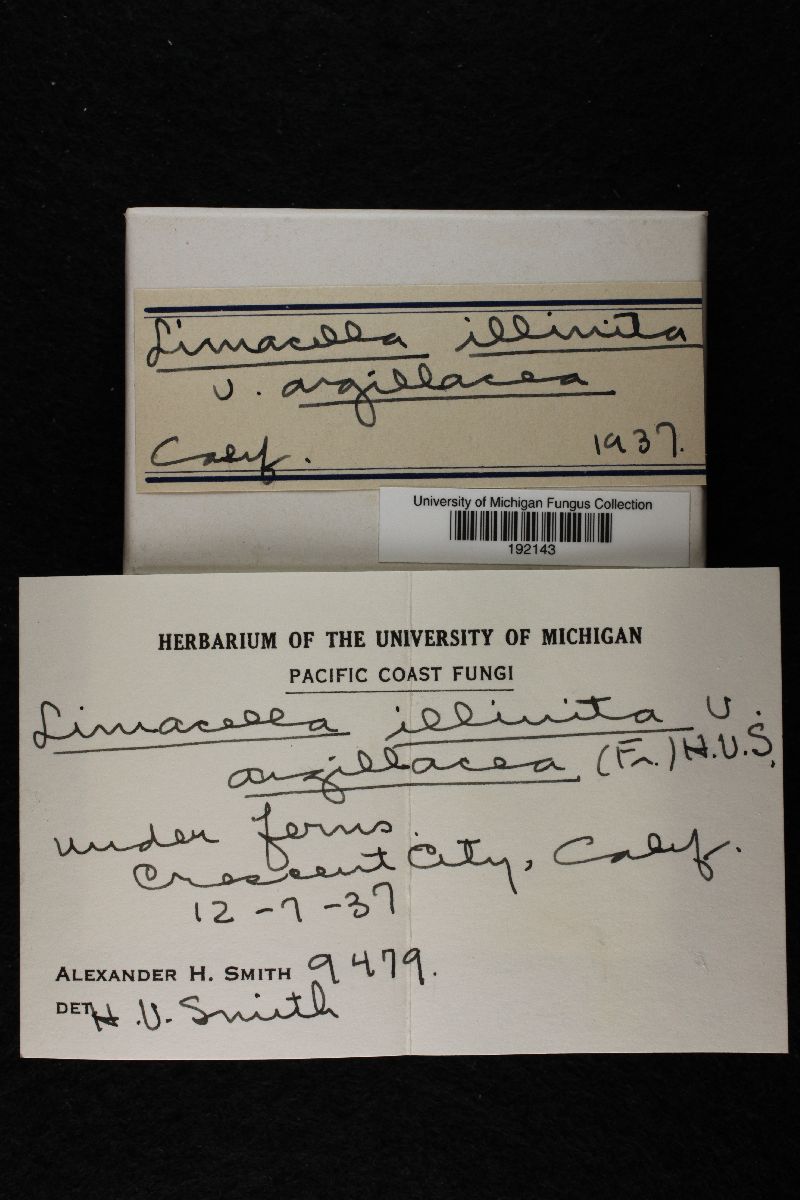 Limacella illinita
v. argillacea
Calif. 1937.
University of Michigan Fungus Collection
192143
HERBARIUM OF THE UNIVERSITY OF MICHIGAN
PACIFIC COAST FUNGI
Limacella illinita v.
argillacea (Fr.) H.V.S.
under ferns
Crescent City, Calif.
12-7-37
ALEXANDER H. SMITH 9479.
DET. H.V. Smith